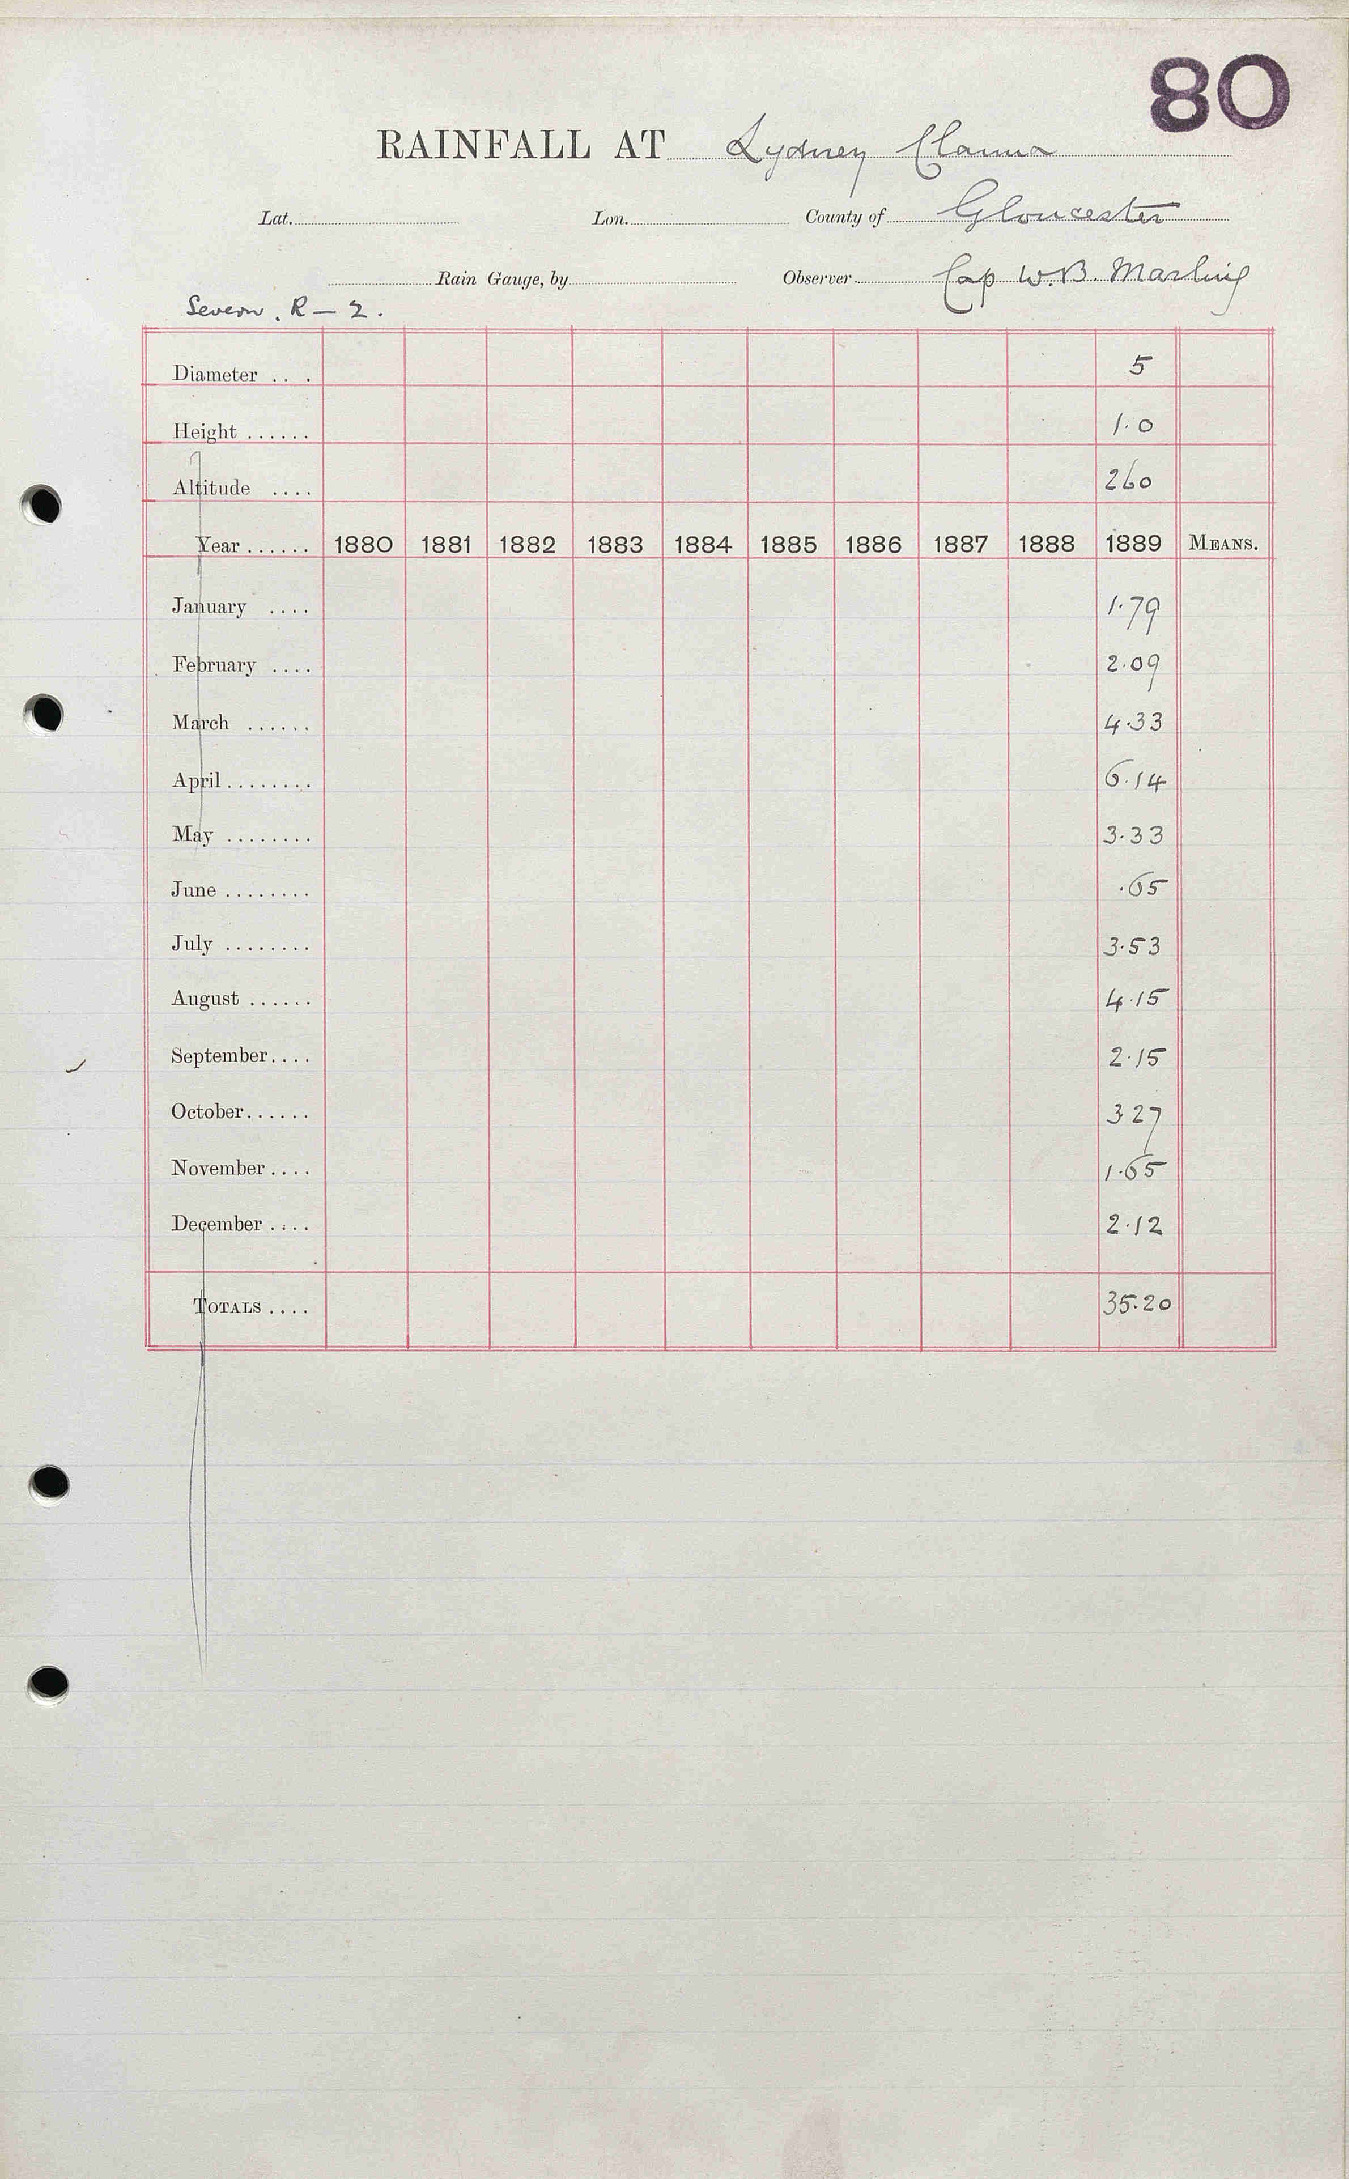 80
RAINFALL AT Lydney Clanna
Lat. Lon. County of Gloucester
Rain Gauge, by Observer Cap W.B. Marling
Severn. R — 2.
Diameter .... 5
Height ...... 1.0
Altitude .... 260
Year ...... 1880 1881 1882 1883 1884 1885 1886 1887 1888 1889 MEANS.
January .... 1.79
February .... 2.09
March ...... 4.33
April ........ 6.14
May ........ 3.33
June ........ .65
July ........ 3.53
August ...... 4.15
September.... 2.15
October...... 3 27
November.... 1.65
December .... 2.12
TOTALS .... 35.20